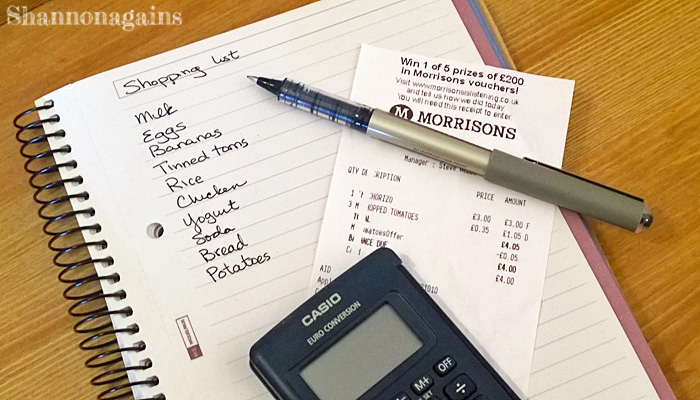 Shannonagains
Shopping list
Milk
Eggs
Bananas
Tinned toms
Rice
Chicken
Yogurt
Soda
Bread
Potatoes
Win 1 of 5 prizes of £200
in Morrisons vouchers!
Visit www.morrisonsislistening.co.uk
and tell us how we did today
You will need this receipt to enter
M MORRISONS
Manager : Steve
QTY PRICE AMOUNT
1 CHORIZO £3.00 £3.00 F
3 OPPED TOMATOES £0.35 £1.05 D
£4.05
matoesOffer -£0.05
DUE £4.00
£4.00
AID
CASIO
EURO CONVERSION
M+ OFF
SET ÷